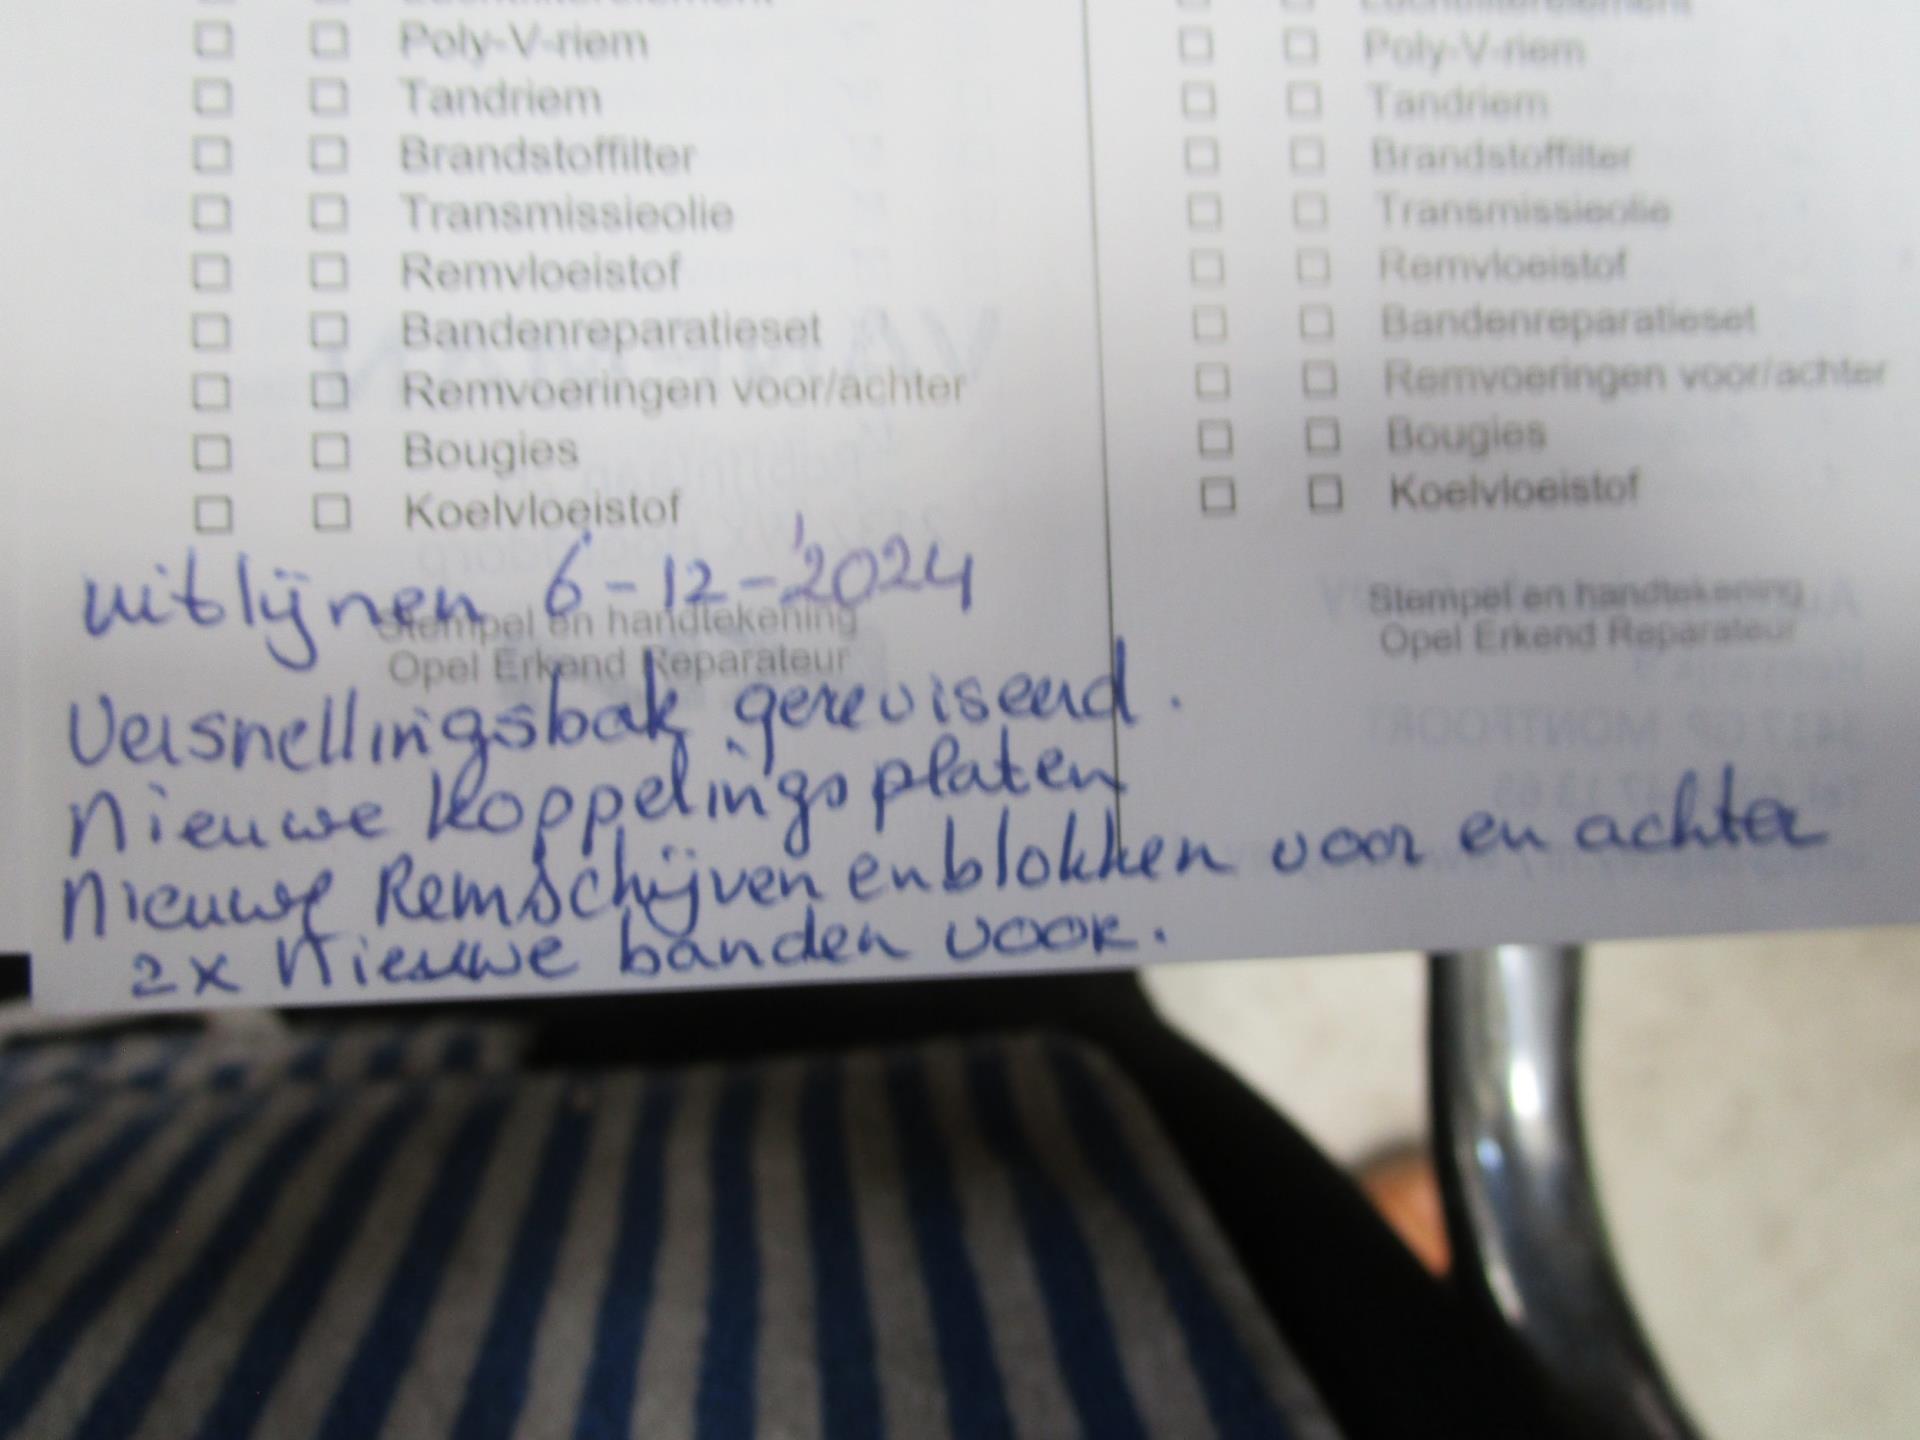 Poly-V-riem
Tandriem
Brandstoffilter
Transmissieolie
Remvloeistof
Bandenreparatieset
Remvoeringen voor/achter
Bougies
Koelvloeistof
uitlijnen 6-12-2024
Stempel en handtekening
Opel Erkend Reparateur
Versnellingsbak gereviseerd.
Nieuwe koppelingsplaten
Nieuwe Remschijven en blokken voor en achter
2x Nieuwe banden voor.
Luchtfilterelement
Poly-V-riem
Tandriem
Brandstoffilter
Transmissieolie
Remvloeistof
Bandenreparatieset
Remvoeringen voor/achter
Bougies
Koelvloeistof
Stempel en handtekening
Opel Erkend Reparateur
MONTFOORT